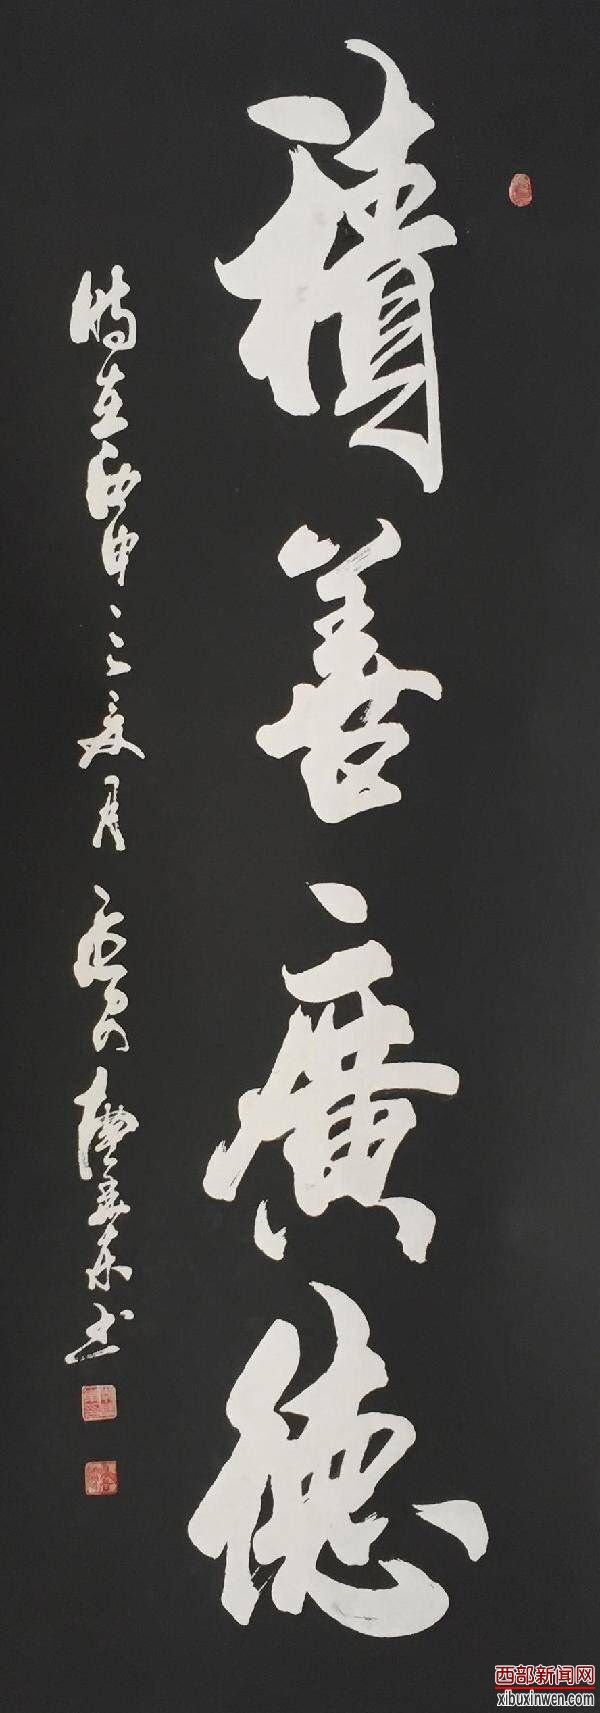 積善廣德
時在丙申之夏月
書
西部新闻网
xibuxinwen.com